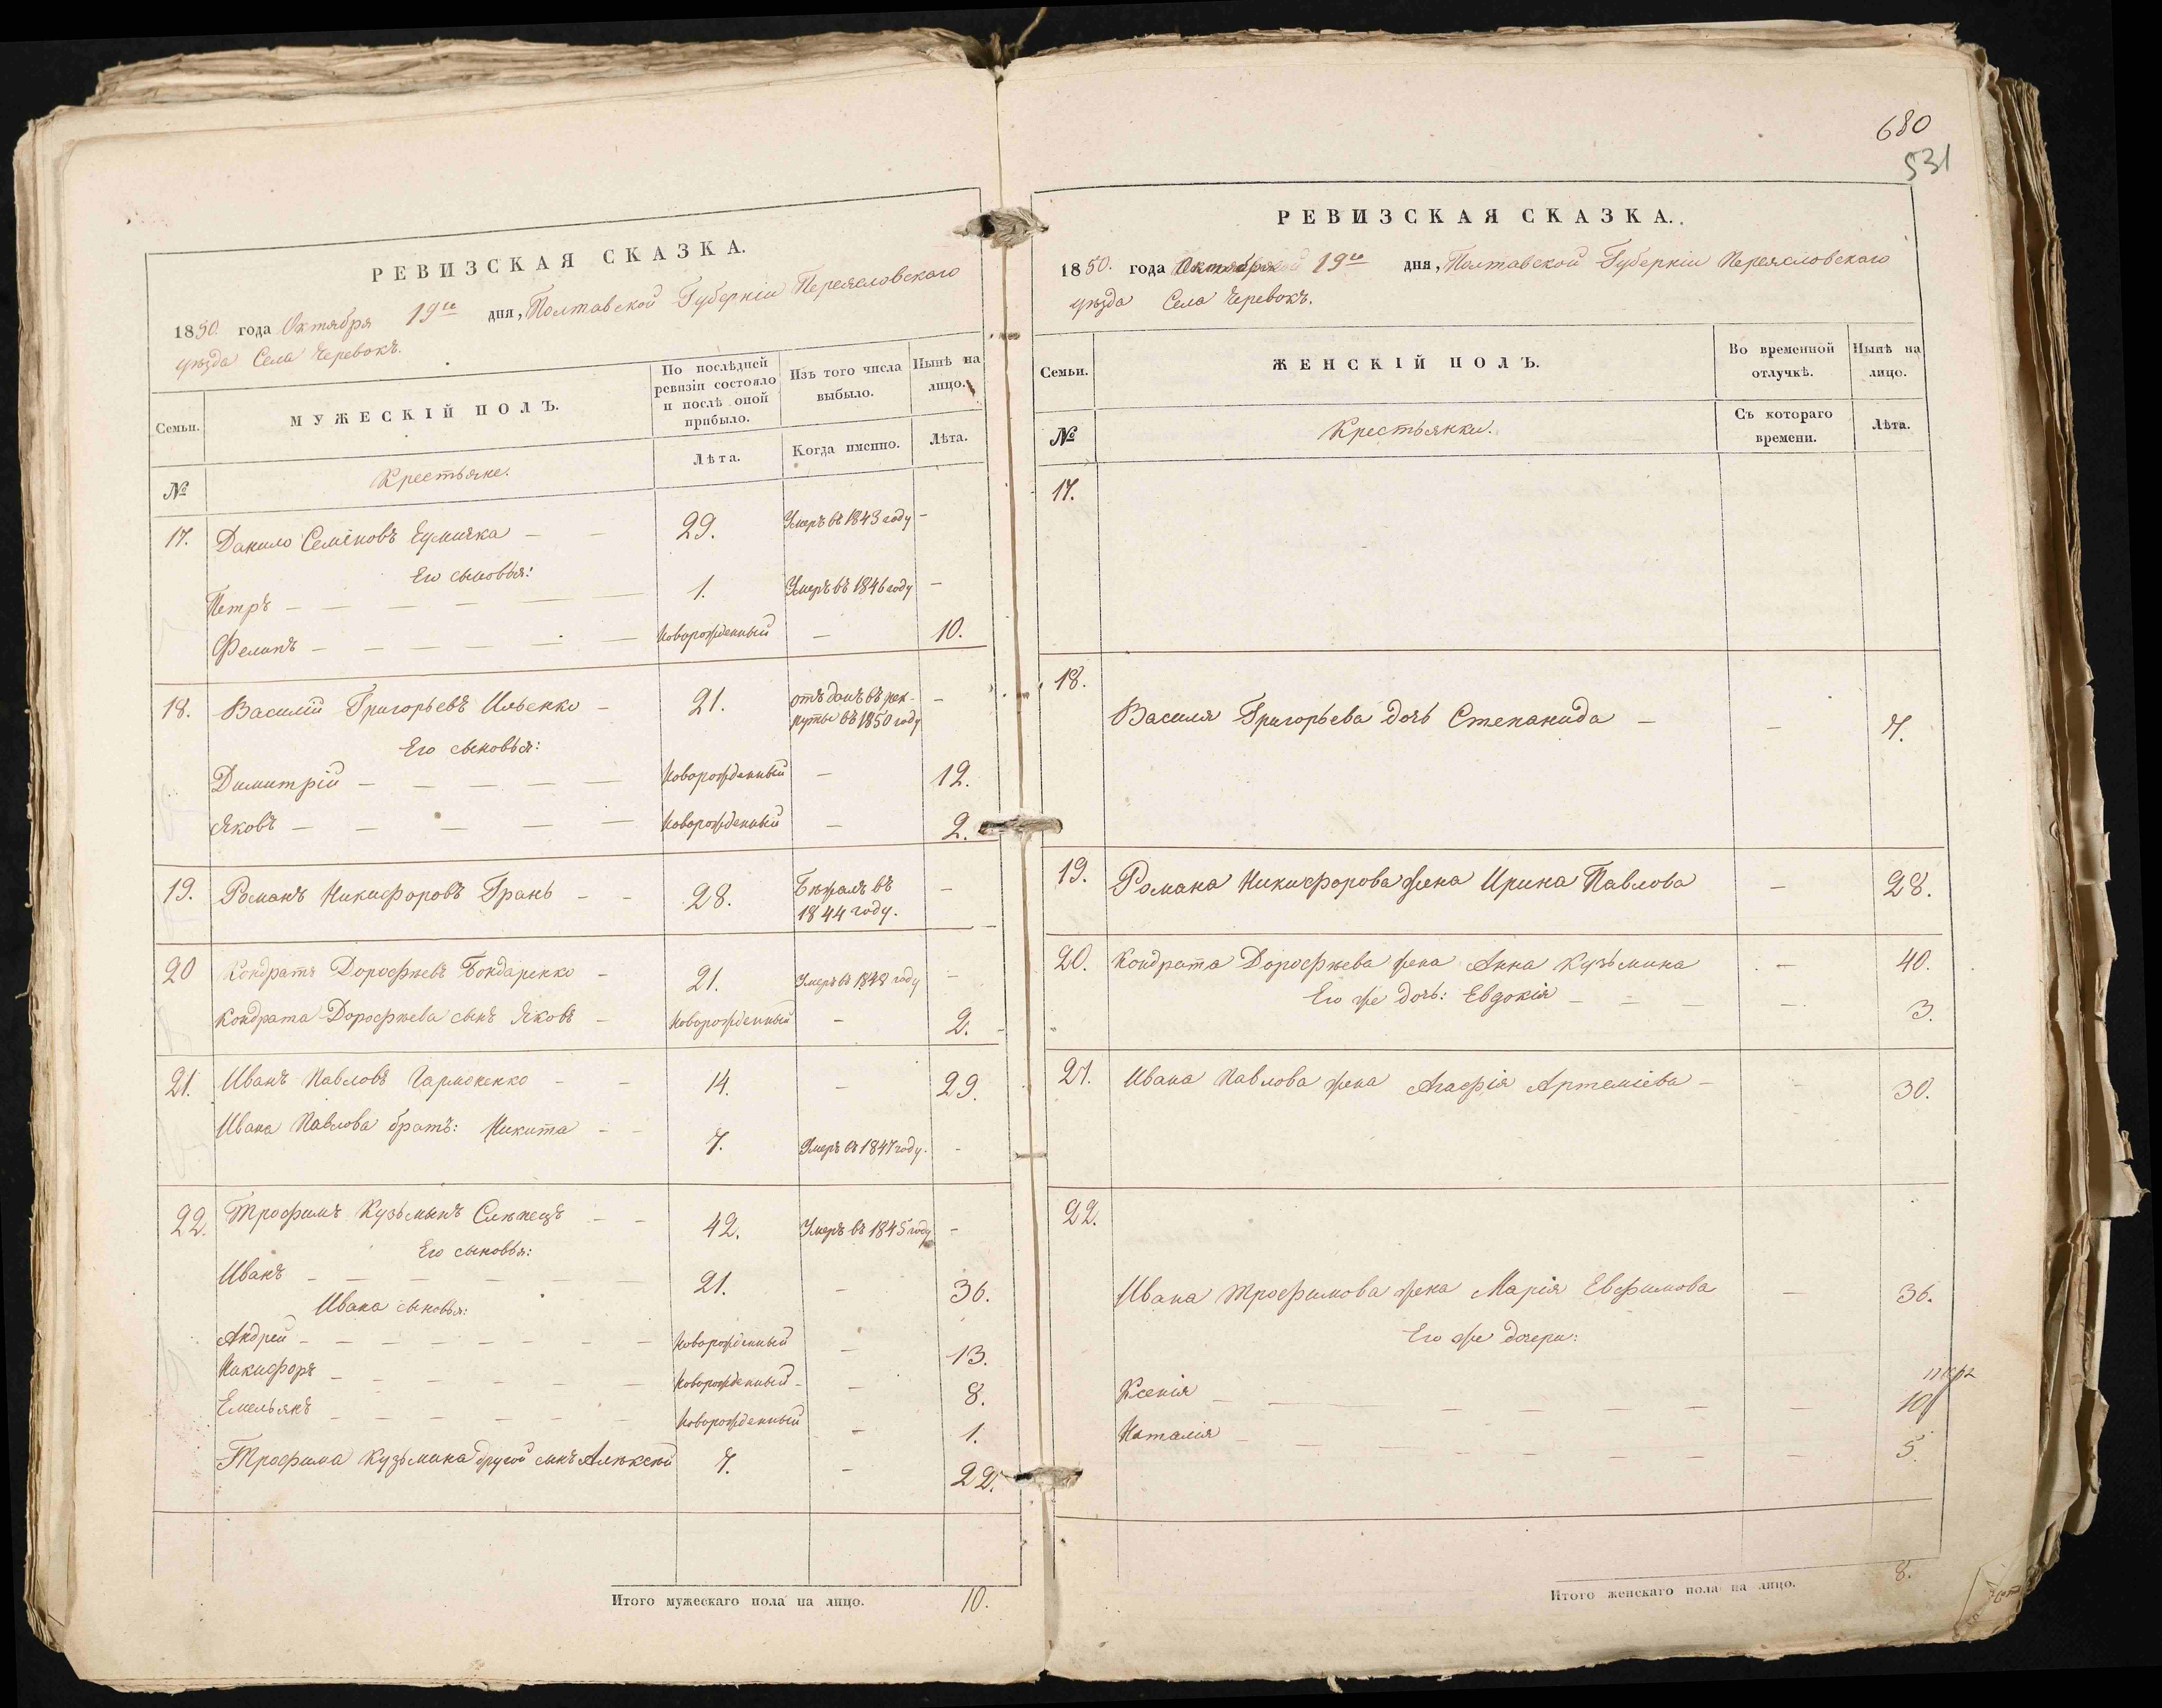 РЕВИЗСКАЯ СКАЗКА.
1850 года Октября 19го дня, Полтавской Губерніи Переясловскаго
уѣзда Села Черевокъ.
Семьи.
МУЖЕСКІЙ ПОЛЪ.
По послѣдней ревизіи состояло и послѣ оной прибыло.
Изъ того числа выбыло.
Нынѣ на лицо.
№
Крестьяне.
Лѣта.
Когда именно.
Лѣта.
17. Данило Семёновъ — — 29. Умеръ въ 1843 году —
Его сыновья:
Петръ — — — — — — 1. Умеръ въ 1846 году —
Филипъ — — — — — — новорожденный — 10.
18. Василій Григорьевъ Ильенко — 21. отъданъ въ рек-
руты въ 1850 году —
Его сыновья:
Димитрій — — — — — новорожденный — 12.
Яковъ — — — — — новорожденный — 2.
19. Романъ Никифоровъ Грань — — 28. Бѣжалъ въ
1844 году. —
20 Кондратъ Дорофѣевъ Бондаренко — 21. Умеръ въ 1848 году —
Кондрата Дорофѣева сынъ Яковъ — новорожденный — 2.
21. Иванъ Павловъ — — 14. — 29.
Ивана Павлова братъ: Никита — — 7. Умеръ въ 1847 году. —
22. Трофимъ Кузьминъ Слѣпецъ — — 42. Умеръ въ 1845 году —
Его сыновья:
Иванъ — — — — — — — 21. — 36.
Ивана сыновья:
Андрей — — — — — — — — новорожденный — 13.
Никифоръ — — — — — — новорожденный — — 8.
Емельянъ — — — — — — новорожденный — 1.
Трофима Кузьмина другой сынъ Алѣксѣй 7. — 22.
Итого мужескаго пола на лицо. 10.
680
531
РЕВИЗСКАЯ СКАЗКА.
1850. года Октября 19го дня, Полтавской Губерніи Переясловскаго
уѣзда Села Черевокъ.
Семьи.
ЖЕНСКІЙ ПОЛЪ.
Во временной отлучкѣ.
Нынѣ на лицо.
№
Крестьянки.
Съ котораго времени.
Лѣта.
17.
18.
Василя Григорьева дочь Степанида — — 7.
19. Романа Никифорова жена Ирина Павлова — 28.
20. Кондрата Дорофѣева жена Анна Кузьмина — 40.
Его же дочь: Евдокія — — — — 3.
21. Ивана Павлова жена Агафія Артеміева — — 30.
22.
Ивана Трофимова жена Марія Евфимова — 36.
Его же дочери:
Ксенія — — — — — — — 10
Наталія — — — — — — — 5.
Итого женскаго пола на лицо. 8.